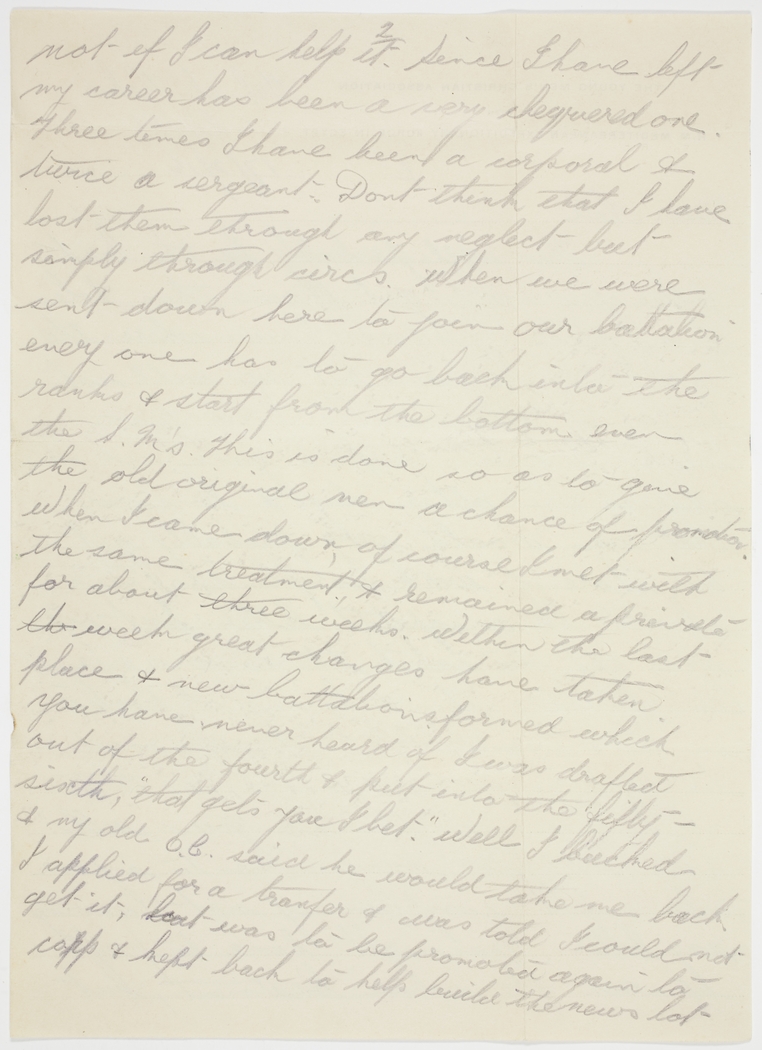 2
not if I can help it. Since I have left
my career has been a very chequered one.
Three times I have been a corporal &
twice a sergeant. Dont think that I have
lost them through any neglect but
simply through circs. When we were
sent down here to join our battalion
every one has to go back into the
ranks & start from the bottom even
the S.M's. This is done so as to give
the old original men a chance of promotion.
When I came down, of course I met with
the same treatment, & remained a private
for about three weeks. Within the last
th week great changes have taken
place & new battalions formed which
you have never heard of. I was drafted
out of the fourth & put into the fifty-
sixth, "that gets you I bet." Well I bucked
& my old O.C. said he would take me back.
I applied for a tranfer & was told I could not
get it, but was to be promoted again to
corp & kept back to help build the news lot